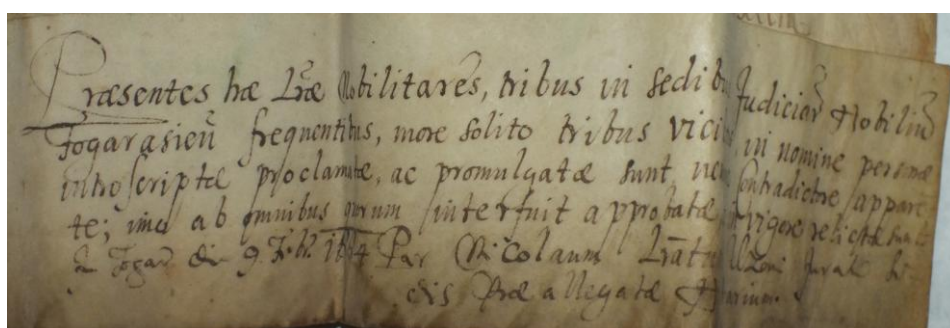 Præsentes hæ Lr̄æ Nobilitares, tribus in Sedib Judiciar̄ Nobiliū
Fogarasieū frequentibus, more solito tribus vici in nomine personæ
introscriptæ proclamatæ, ac promulgatæ sunt, nem Contradictore apparē
te; imo ab omnibus quorum interfuit approbatæ vigore relictæ sunt
Fogar die 9. Febr. Par Nicolaum Jurat
dis Præallegatæ